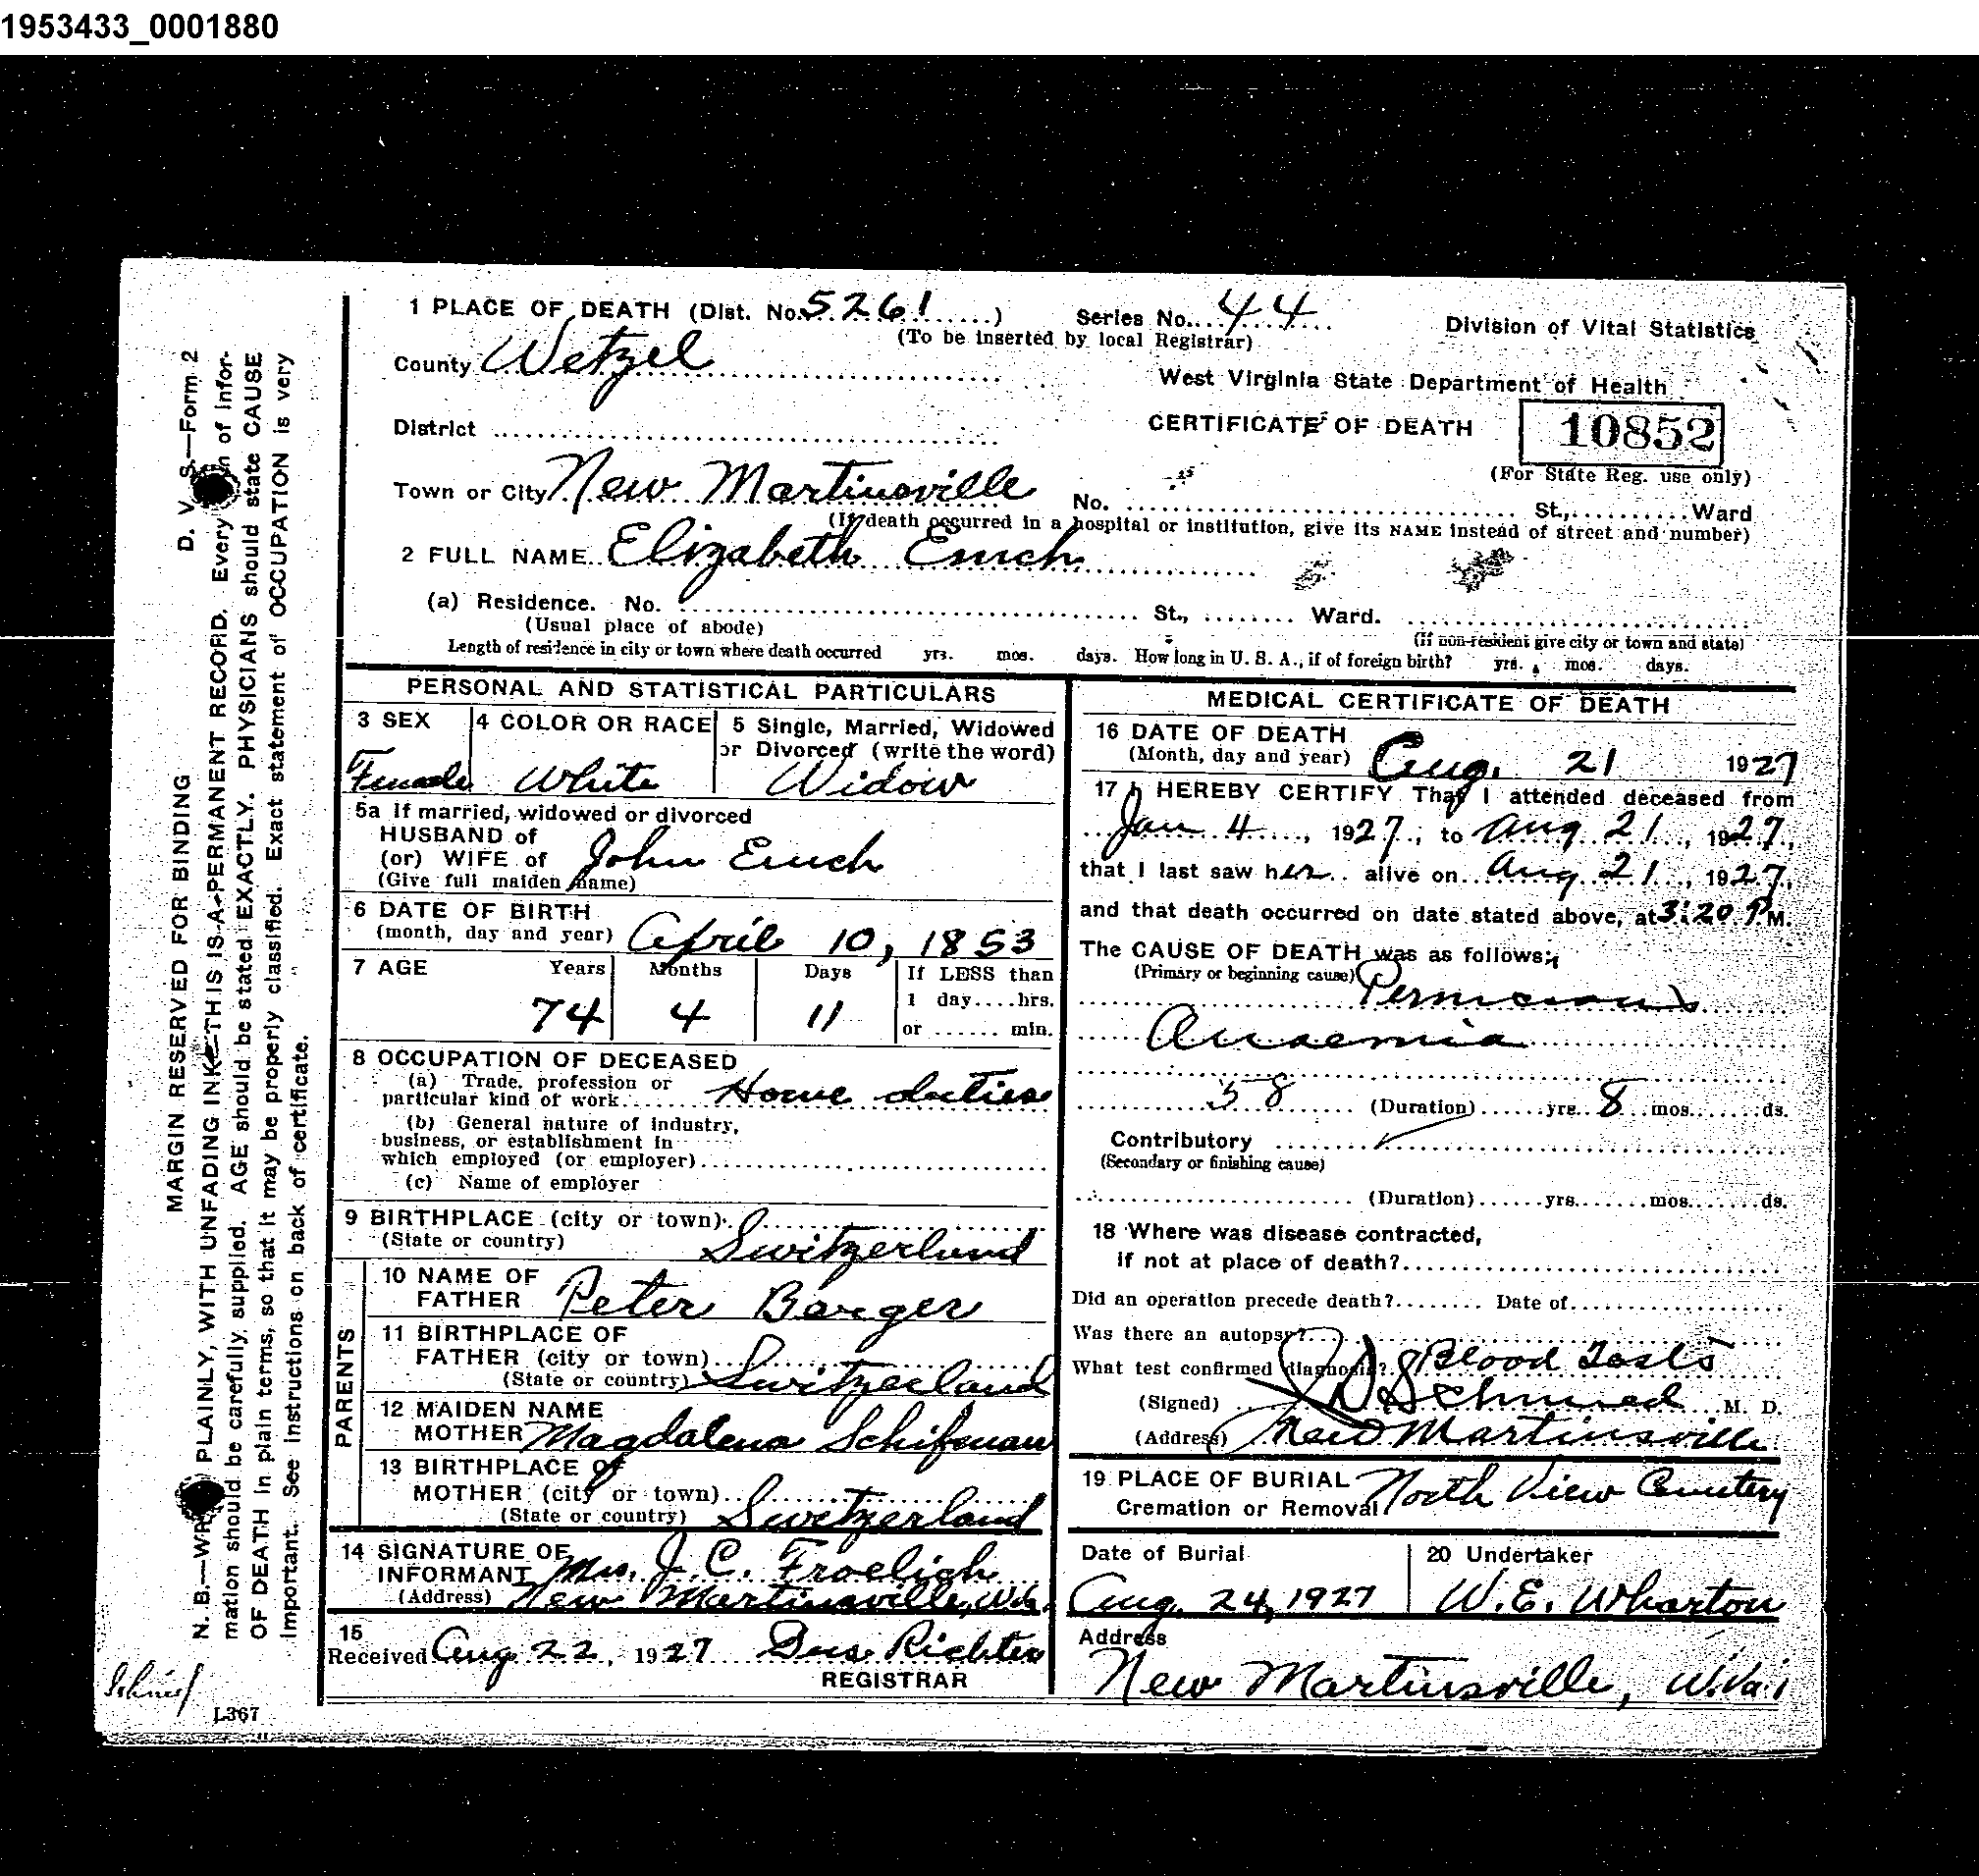 1953433_0001880
1 PLACE OF DEATH (Dist. No. 5261) Series No. 44
(To be inserted by local Registrar)
Division of Vital Statistics
County Wetzel
West Virginia State Department of Health
District
CERTIFICATE OF DEATH 10852
(For State Reg. use only)
Town or City New Martinsville No. St., Ward
(If death occurred in a hospital or institution, give its NAME instead of street and number)
2 FULL NAME Elizabeth Emch
(a) Residence. No. St., Ward.
(Usual place of abode) (If non-resident give city or town and state)
Length of residence in city or town where death occurred yrs. mos. days. How long in U. S. A., if of foreign birth? yrs. mos. days.
PERSONAL AND STATISTICAL PARTICULARS
3 SEX
Female
4 COLOR OR RACE
White
5 Single, Married, Widowed
or Divorced (write the word)
Widow
5a If married, widowed or divorced
HUSBAND of
(or) WIFE of John Emch
(Give full maiden name)
6 DATE OF BIRTH
(month, day and year) April 10, 1853
7 AGE Years Months Days If LESS than
1 day....hrs.
74 4 11 or ...... min.
8 OCCUPATION OF DECEASED
(a) Trade, profession or
particular kind of work Home duties
(b) General nature of industry,
business, or establishment in
which employed (or employer)
(c) Name of employer
9 BIRTHPLACE (city or town)
(State or country) Switzerland
PARENTS
10 NAME OF
FATHER Peter Barger
11 BIRTHPLACE OF
FATHER (city or town)
(State or country) Switzerland
12 MAIDEN NAME
MOTHER Magdalena Schifenau
13 BIRTHPLACE OF
MOTHER (city or town)
(State or country) Switzerland
14 SIGNATURE OF
INFORMANT Mrs. J. C. Froelich
(Address) New Martinsville, W.Va.
15
Received Aug 22, 1927 Gus Richter
REGISTRAR
MEDICAL CERTIFICATE OF DEATH
16 DATE OF DEATH
(Month, day and year) Aug. 21 1927
17 I HEREBY CERTIFY That I attended deceased from
Jan 4, 1927, to Aug 21, 1927,
that I last saw her alive on Aug 21, 1927,
and that death occurred on date stated above, at 3:20 P M.
The CAUSE OF DEATH was as follows:
(Primary or beginning cause) Pernicious
Anaemia
58 (Duration) yrs. 8 mos. ds.
Contributory
(Secondary or finishing cause)
(Duration) yrs. mos. ds.
18 Where was disease contracted,
if not at place of death?
Did an operation precede death? Date of
Was there an autopsy?
What test confirmed diagnosis? Blood Tests
(Signed) Schmied M. D.
(Address) New Martinsville
19 PLACE OF BURIAL North View Cemetery
Cremation or Removal
Date of Burial
Aug. 24, 1927
20 Undertaker
W. E. Wharton
Address
New Martinsville, W.Va.
D. V. S.—Form 2
MARGIN RESERVED FOR BINDING
N. B.—WRITE PLAINLY, WITH UNFADING INK—THIS IS A PERMANENT RECORD. Every item of infor-
mation should be carefully supplied. AGE should be stated EXACTLY. PHYSICIANS should state CAUSE
OF DEATH in plain terms, so that it may be properly classified. Exact statement of OCCUPATION is very
important. See instructions on back of certificate.
L367